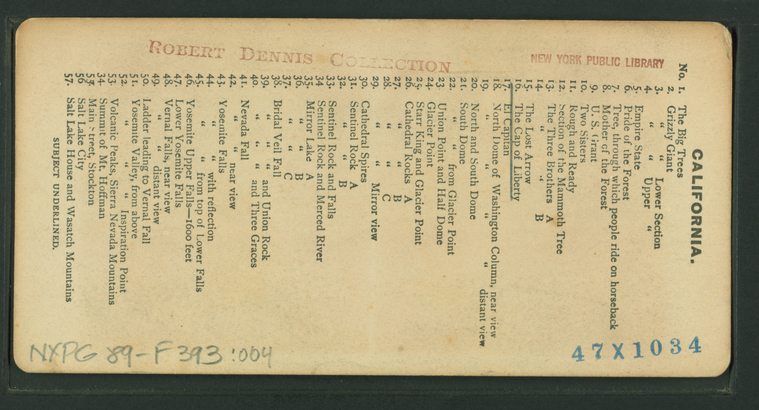 ROBERT DENNIS COLLECTION
NEW YORK PUBLIC LIBRARY
CALIFORNIA.
No. 1. The Big Trees
2. Grizzly Giant
3. " " Lower Section
4. " " Upper "
5. Empire State
6. Pride of the Forest
7. Tree, through which people ride on horseback
8. Mother of the Forest
9. U. S. Grant
10. Two Sisters
11. Rough and Ready
12. Section of the Mammoth Tree
13. The Three Brothers A
14. " " " B
15. The Lost Arrow
16. The Cap of Liberty
17. El Capitan
18. North Dome of Washington Column, near view
19. " " " " distant view
20. North and South Dome
21. South Dome
22. " " from Glacier Point
23. Union Point and Half Dome
24. Glacier Point
25. Starr King and Glacier Point
26. Cathedral Rocks A
27. " " B
28. " " C
29. " " Mirror view
30. Cathedral Spires
31. Sentinel Rock A
32. " " B
33. Sentinel Rock and Falls
34. Sentinel Rock and Merced River
35. Mirror Lake A
36. " " B
37. " " C
38. Bridal Veil Fall
39. " " " and Union Rock
40. " " " and Three Graces
41. Nevada Fall
42. " " near view
43. Yosemite Falls
44. " " with reflection
45. " " from top of Lower Falls
46. Yosemite Upper Falls—1600 feet
47. Lower Yosemite Falls
48. Vernal Falls, near view
49. " " distant view
50. Ladder leading to Vernal Fall
51. Yosemite Valley, from above
52. " " Inspiration Point
53. Volcanic Peaks, Sierra Nevada Mountains
54. Summit of Mt. Hoffman
55. Main Street, Stockton
56. Salt Lake City
57. Salt Lake House and Wasatch Mountains
SUBJECT UNDERLINED.
NXPG 89-F393:004
47X1034